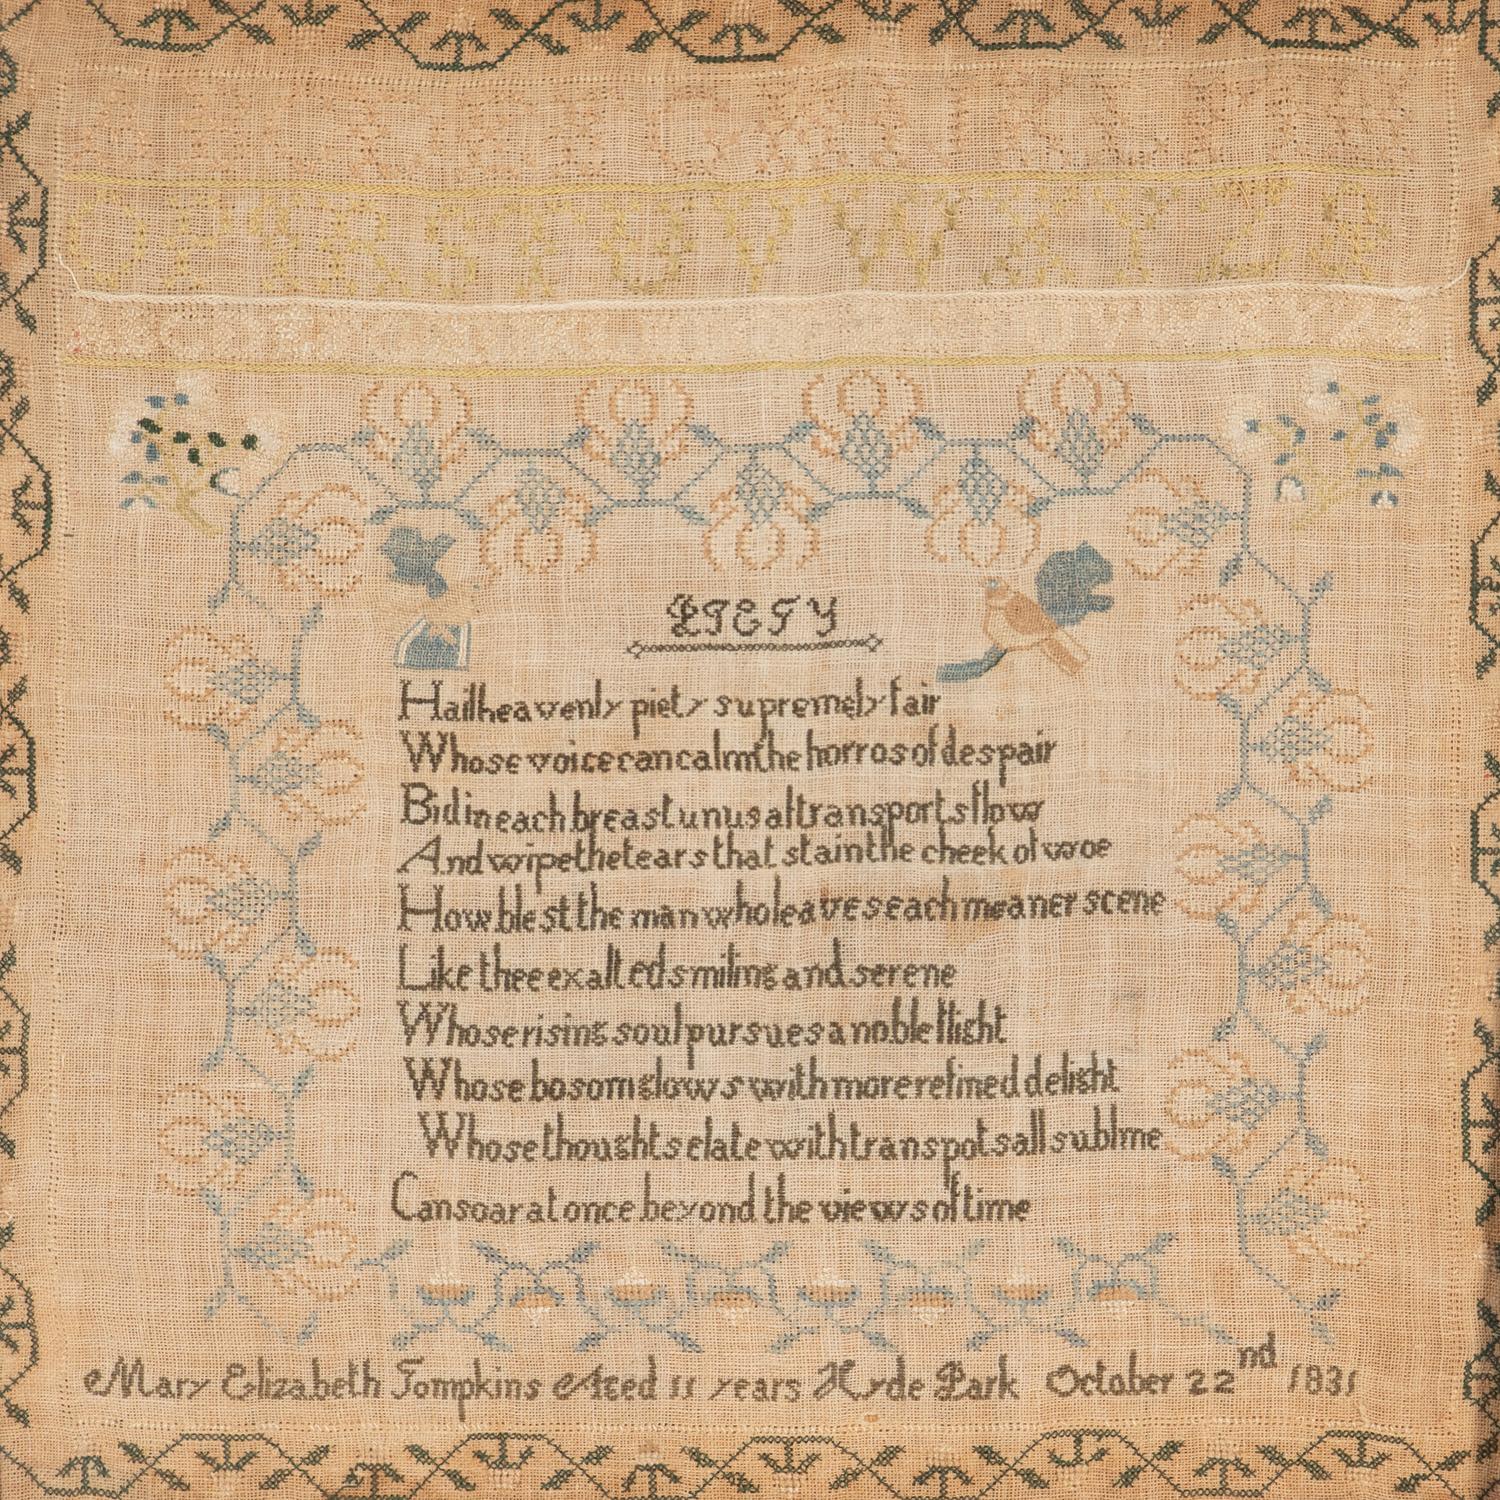 O P R S T U V W X Y Z &
PIETY
Hail heavenly piety supremely fair
Whose voice can calm the horros of despair
Bid in each breast unusal transports flow
And wipe the tears that stain the cheek of woe
How blest the man who leaves each meaner scene
Like thee exalted smiling and serene
Whose rising soul pursues a noble flight
Whose bosom glows with more refined delight
Whose thoughts elate with transpots all sublme
Can soar at once beyond the views of time
Mary Elizabeth Tompkins Aged 11 years Hyde Park October 22nd 1831